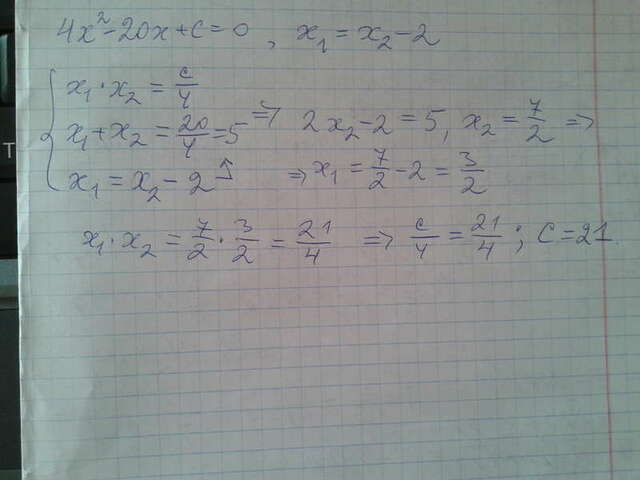 4x²-20x+c=0, x₁=x₂-2
x₁·x₂=c/4
x₁+x₂=20/4=5 ⇒ 2x₂-2=5, x₂=7/2 ⇒
x₁=x₂-2 ⇒x₁=7/2-2=3/2
x₁·x₂=7/2·3/2=21/4 ⇒ c/4=21/4; C=21.
T